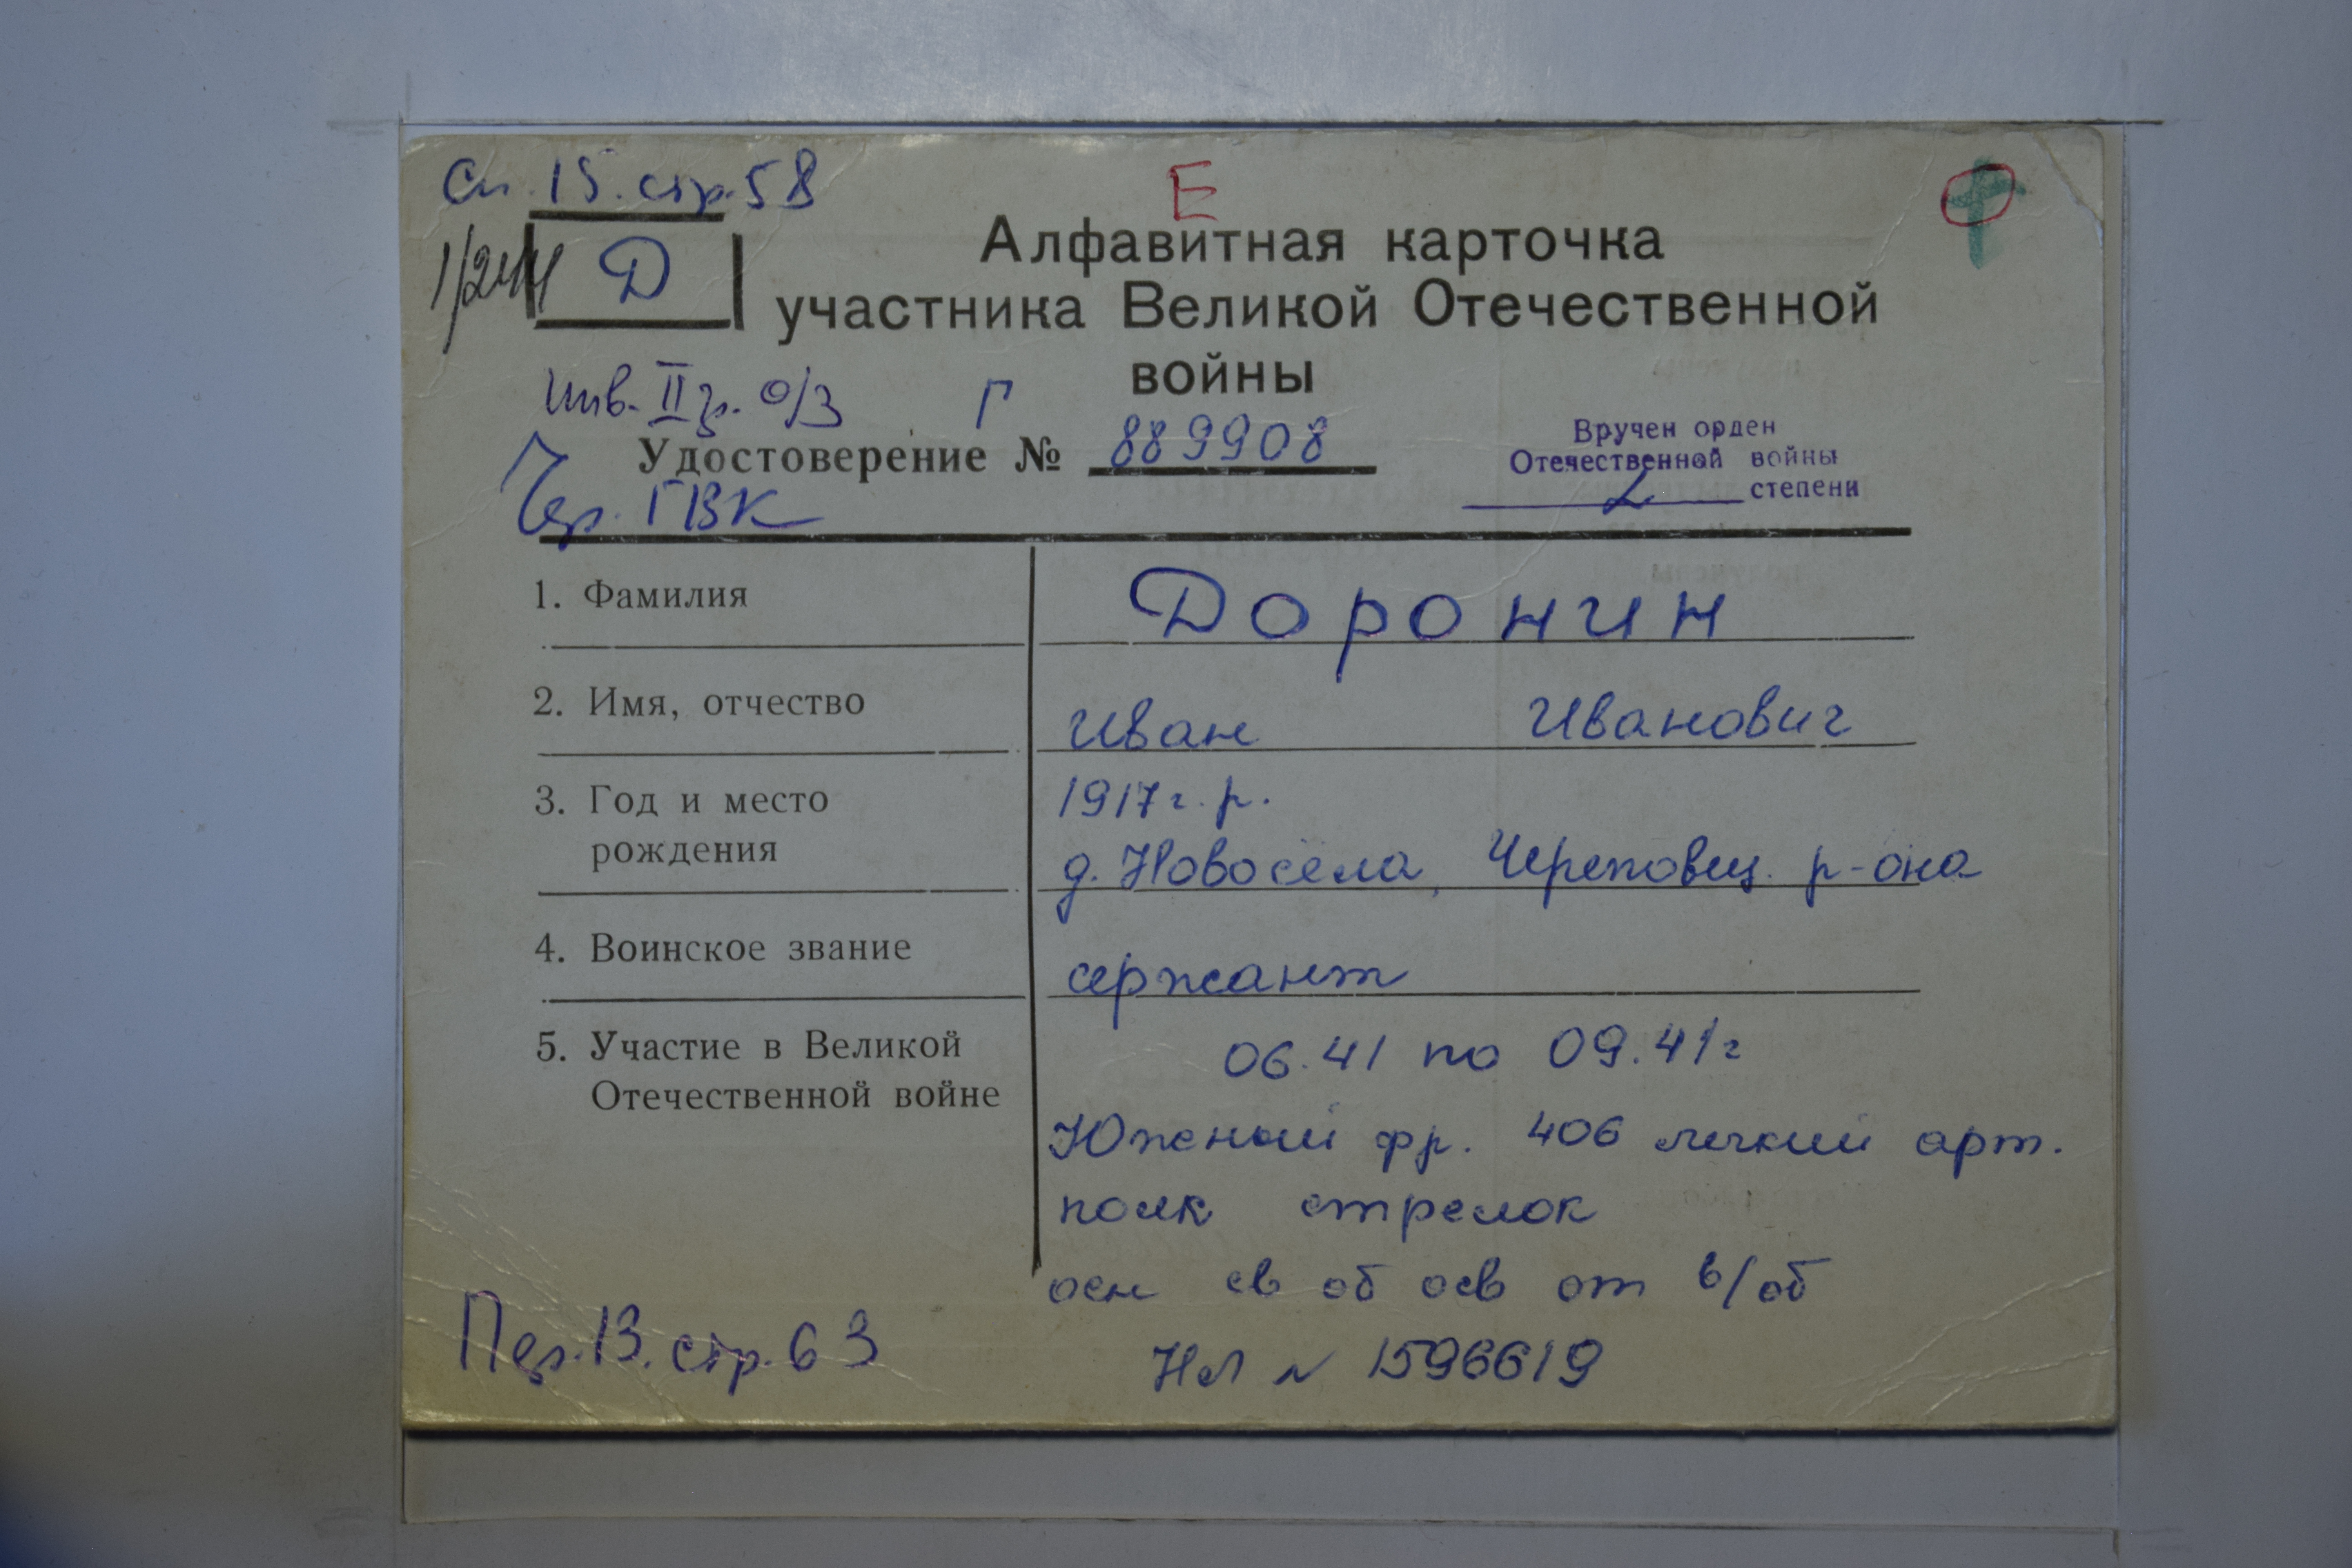 Сп. 15. стр. 58
Е
Д
Алфавитная карточка
участника Великой Отечественной
войны
Инв. II гр. о/з Г
Удостоверение № 889908
Чер. ГВК
Вручен орден
Отечественной войны
степени
1. Фамилия Доронин
2. Имя, отчество Иван Иванович
3. Год и место 1917 г. р.
рождения д. Новосёла, Череповец. р-она
4. Воинское звание сержант
5. Участие в Великой 06.41 по 09.41г
Отечественной войне
Южный фр. 406 легкий арт.
полк стрелок
осн св об осв от в/об
Пер. 13. стр. 63
НЛ № 1596619